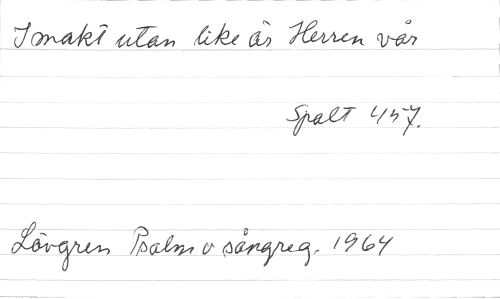 I makt utan like är Herren vår
Spalt 457.
Lövgren Psalm o sångreg. 1964